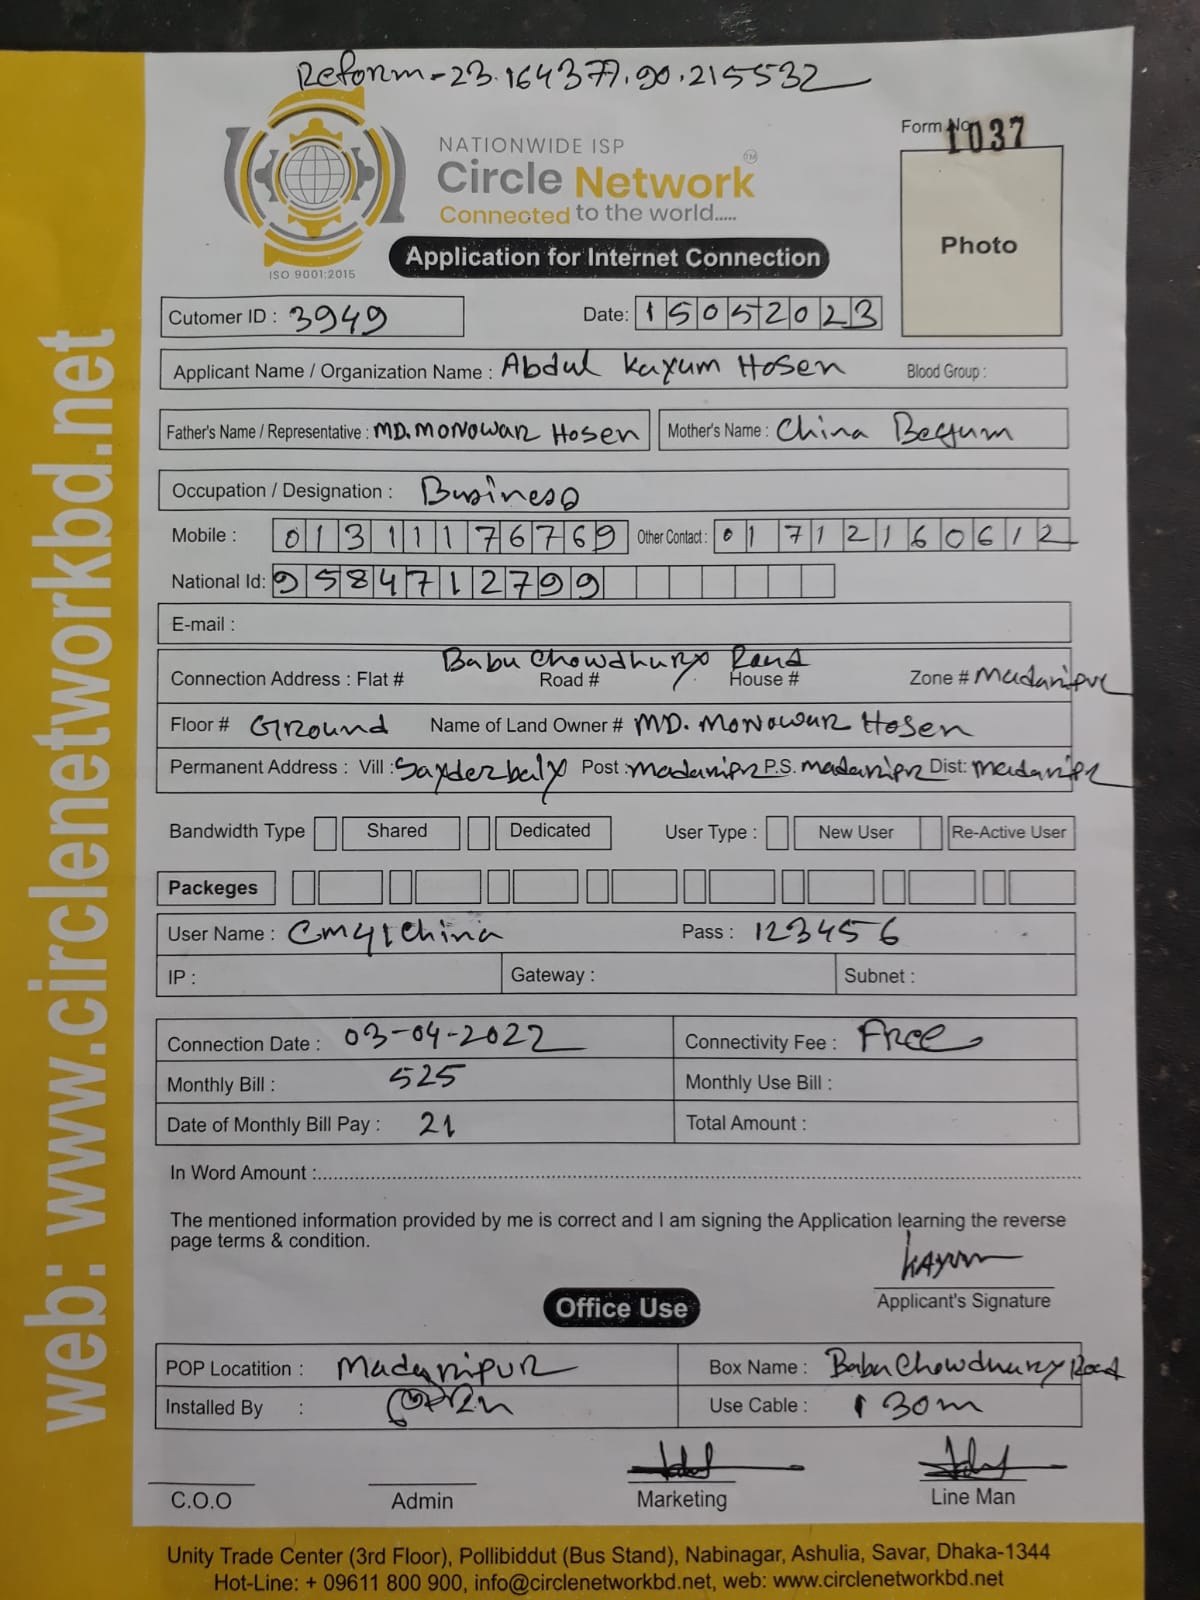 Reform-23.164377.90.215532
Form No 1037
NATIONWIDE ISP
Circle Network TM
Connected to the world.....
ISO 9001:2015
Application for Internet Connection
Photo
Cutomer ID : 3949 Date: 15052023
Applicant Name / Organization Name : Abdul Kayum Hosen Blood Group :
Father's Name / Representative : MD. MONOWAR Hosen Mother's Name : China Begum
Occupation / Designation : Business
Mobile : 01311176769 Other Contact : 01712160612
National Id: 9584712799
E-mail :
Babu Chowdhury Road
Connection Address : Flat # Road # House # Zone # Madaripur
Floor # GROUND Name of Land Owner # MD. MONOWAR Hosen
Permanent Address : Vill : Sayderbaly Post : madaripr P.S. madaripr Dist: madaripr
Bandwidth Type Shared Dedicated User Type : New User Re-Active User
Packeges
User Name : Cm41China Pass : 123456
IP : Gateway : Subnet :
Connection Date : 03-04-2022 Connectivity Fee : Free
Monthly Bill : 525 Monthly Use Bill :
Date of Monthly Bill Pay : 21 Total Amount :
In Word Amount :
The mentioned information provided by me is correct and I am signing the Application learning the reverse
page terms & condition.
Kayum
Applicant's Signature
Office Use
POP Locatition : Madaripur Box Name : Babu Chowdhury Road
Installed By : Use Cable : 130m
C.O.O Admin Marketing Line Man
Unity Trade Center (3rd Floor), Pollibiddut (Bus Stand), Nabinagar, Ashulia, Savar, Dhaka-1344
Hot-Line: + 09611 800 900, info@circlenetworkbd.net, web: www.circlenetworkbd.net
web: www.circlenetworkbd.net